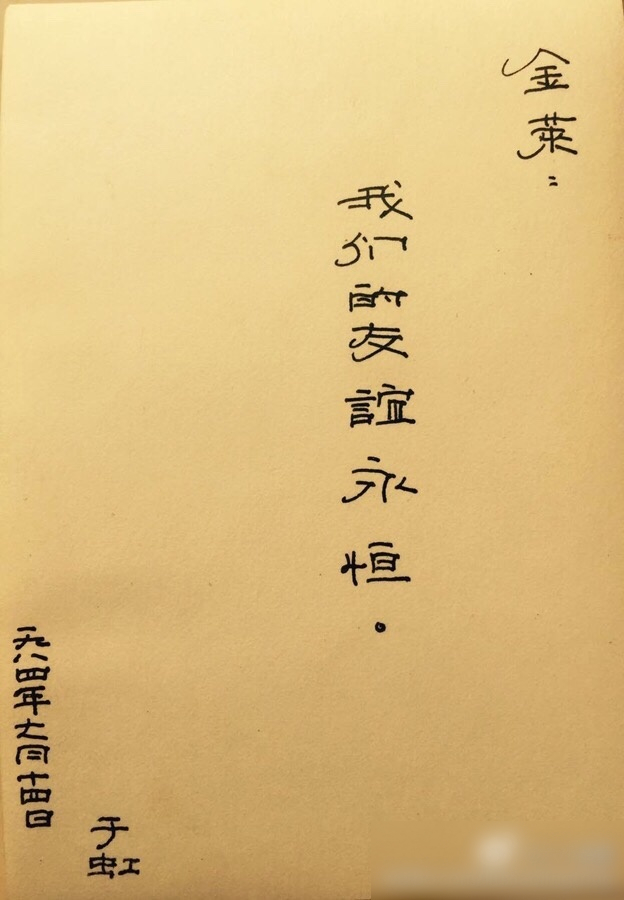 金莱：
我们的友誼永恒。
于虹
一九八四年七月十四日